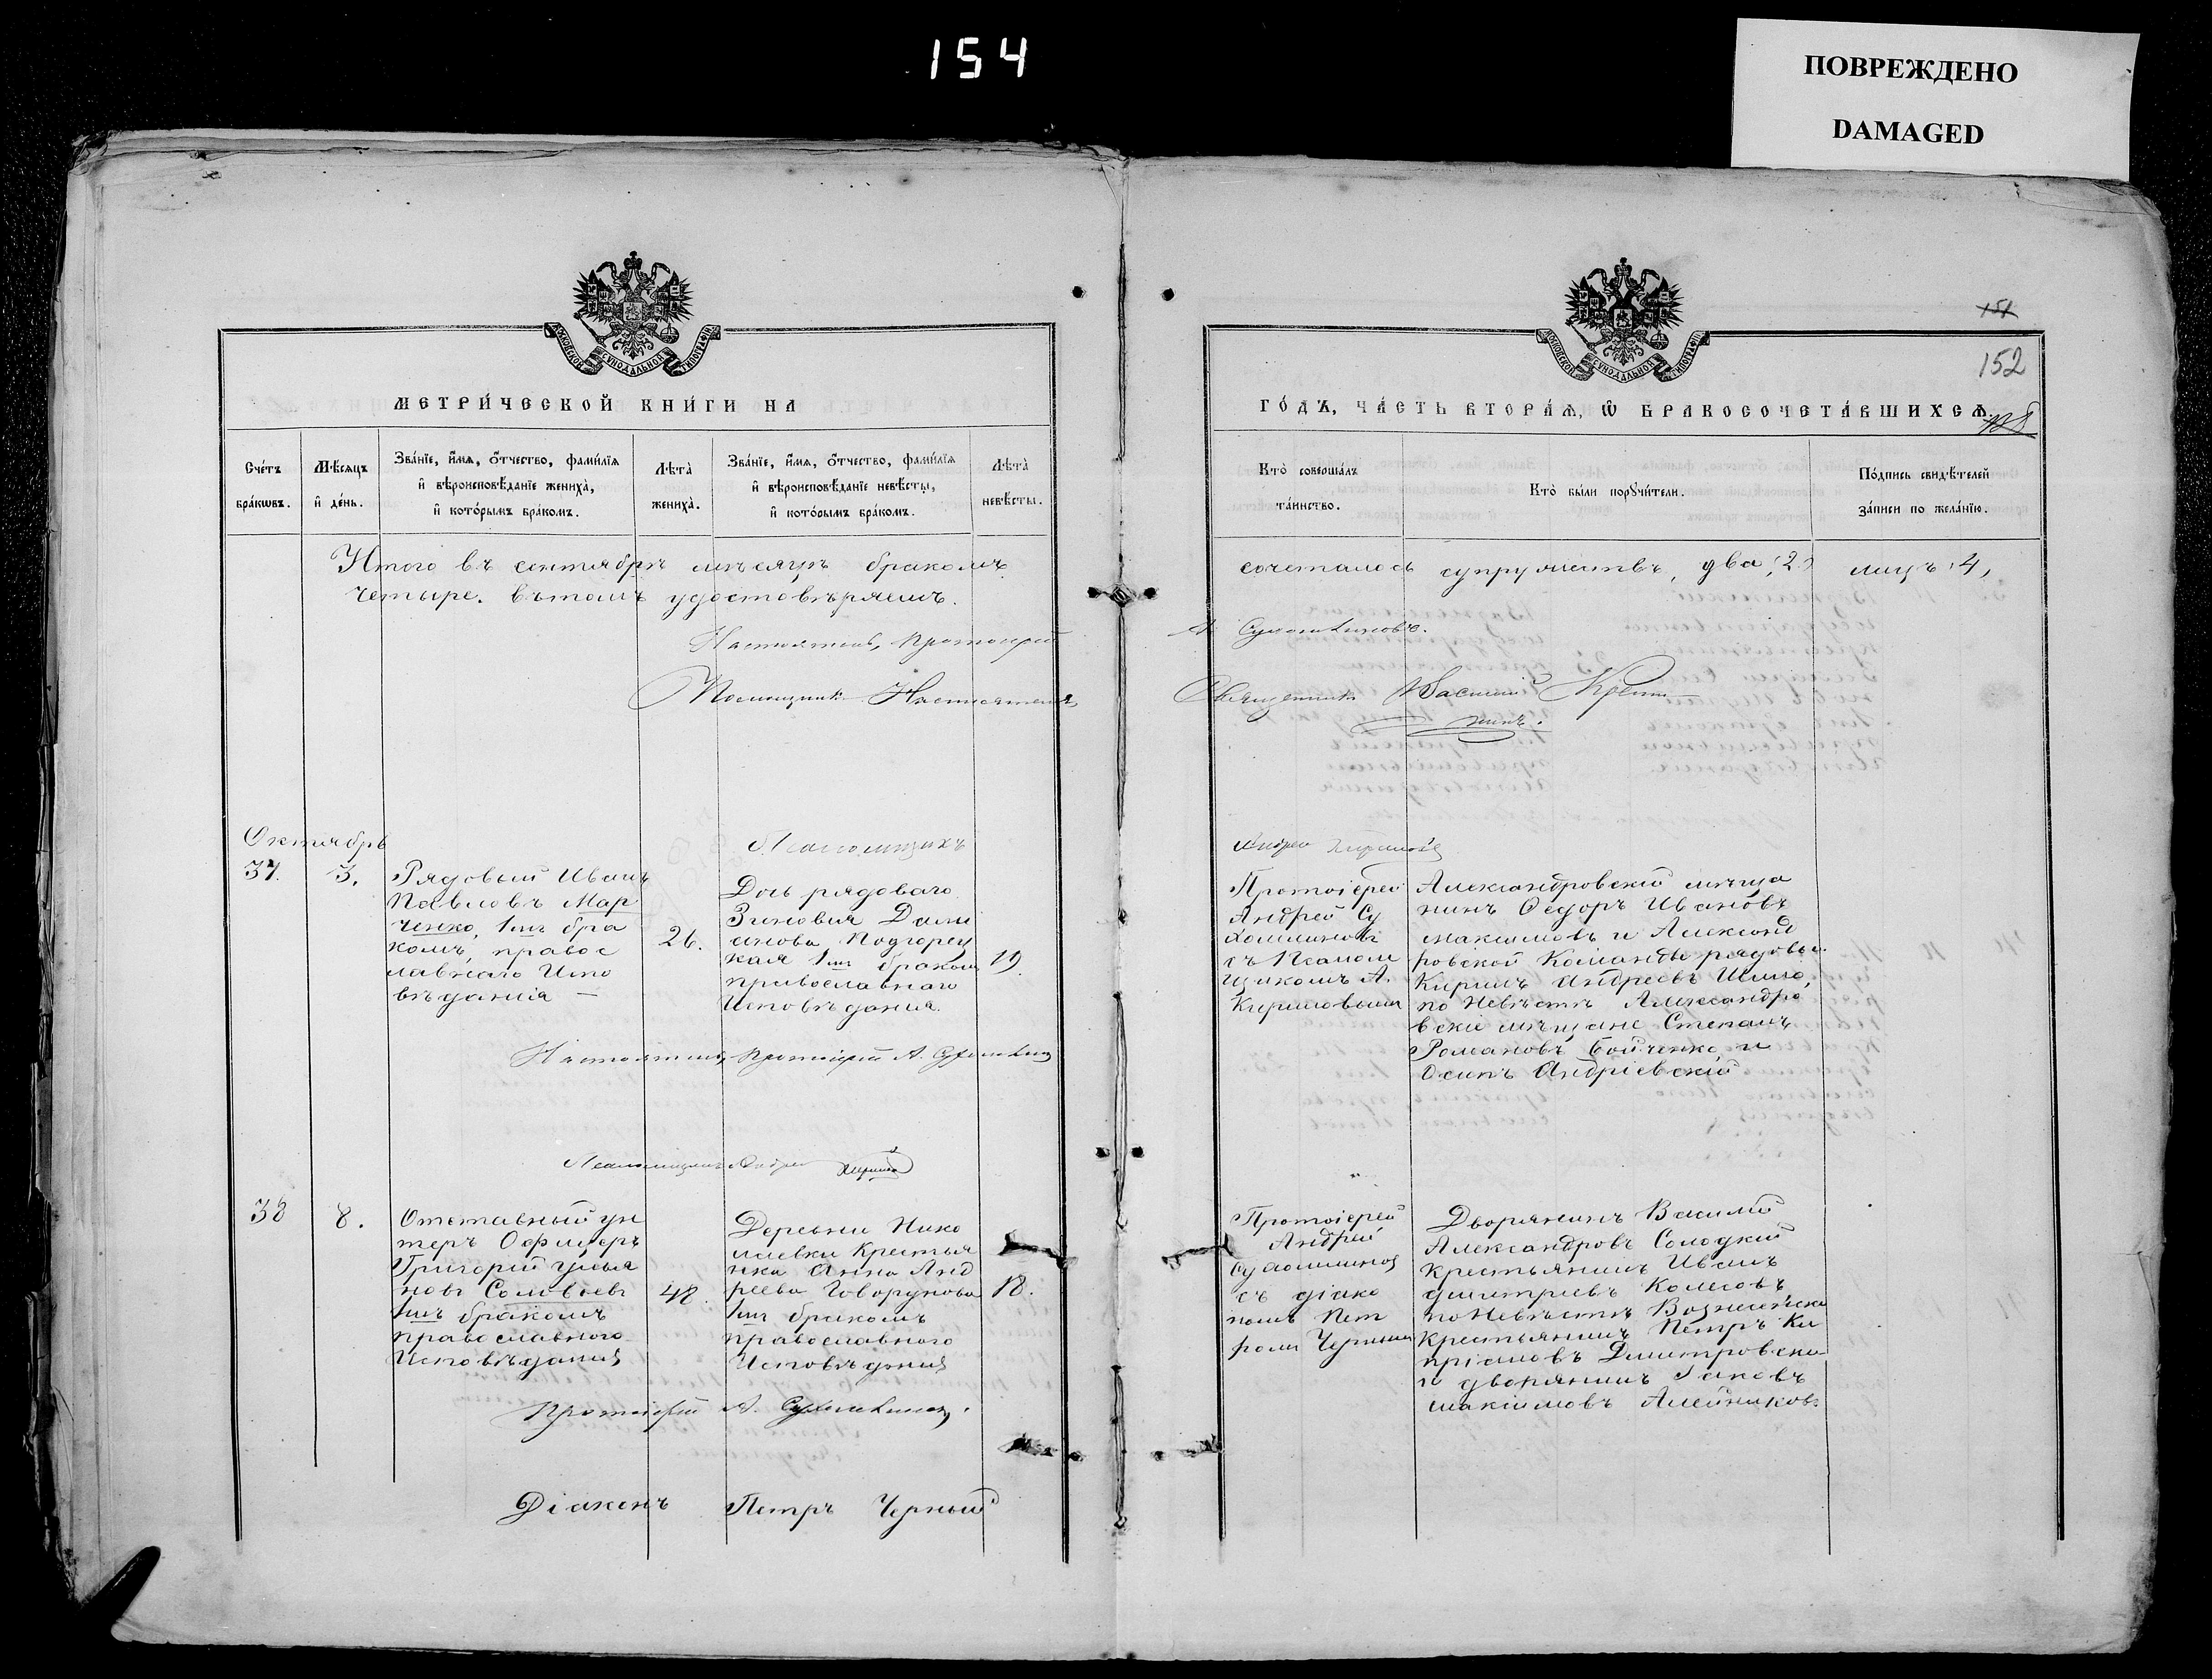 154
ПОВРЕЖДЕНО
DAMAGED
МОСКОВСКОЙ СѴНОДАЛЬНОЙ ТИПОГРАФІИ
МЕТРИ́ЧЕСКОЙ КНИ́ГИ НА
Сче́тъ бра́кѡвъ.
Мѣ́сяцъ и҆ де́нь.
Зва́нїе, и҆́мя, ѻ҆́тчество, фами́лїя
и҆ вѣроисповѣ́данїе жениха̀,
и҆ кото́рымъ бра́комъ.
Лѣта̀ жениха̀.
Зва́нїе, и҆́мя, ѻ҆́тчество, фами́лїя
и҆ вѣроисповѣ́данїе невѣ́сты,
и҆ кото́рымъ бра́комъ.
Лѣта̀ невѣ́сты.
Итого въ сентябрѣ мѣсяцѣ бракомъ
четыре. Въ томъ удостовѣряемъ.
Настоятель, протоіерей
Помощникъ Настоятеля,
Октябрь
Псаломщикъ
37.
3.
Рядовый Иванъ
Павловъ Мар
ченко, 1мъ бра
комъ, правос
лавнаго Испо
вѣданія —
26.
Дочь рядоваго
Зиновия Деми
анова Подгорец
кая 1мъ бракомъ
православнаго
Исповѣдания.
19.
Настоятель, протоіерей А. Сухомлинов
Псаломщикъ Андрей Кирилов
38
8.
Отставный ун
теръ Офицеръ
Григорій Улья
новъ Соловьевъ
1мъ бракомъ
православного
Исповѣдания
48.
Деревни Нико
лаевки Крестья
нка Анна Анд
реева Говорунова
1мъ бракомъ
православного
Исповѣдания
18.
Протоіерей А. Сухомлинов.
Діаконъ Петръ Черный
МОСКОВСКОЙ СѴНОДАЛЬНОЙ ТИПОГРАФІИ
151
152
ГО́ДЪ, ЧА́СТЬ ВТОРА́Я, Ѽ БРАКОСОЧЕТА́ВШИХСЯ.
Кто̀ соверша́лъ
та́инство.
Кто̀ бы́ли порꙋчи́тели.
По́дпись свидѣ́телей
за́писи по жела́нїю.
сочеталось супружествъ, два, (2) лицъ (4)
А. Сухомлиновъ.
Священникъ Василий
Андрей Кирилов
Протоіерей
Андрей Су
хомлиновъ
съ Псалом
щикомъ А.
Кириловымъ
Александровскій мѣща
нинъ Федоръ Ивановъ
Максимовъ и Александ
ровской Команды рядовый
Кирилъ Андреевъ Шило,
по Невѣстѣ Александро
вскіе мѣщане Степанъ
Романовъ Бойченко и
Осипъ Андріевскій
Протоіерей
Андрей
Сухомлинов
съ діако
номъ Пет
ромъ Чернымъ
Дворянинъ Василій
Александровъ Солодкий
крестьянинъ Иванъ
Дмитріевъ Колесовъ,
по Невѣстѣ Вознесенска
Крестьянинъ Петръ Ки
пріановъ Дмитровски
и дворянинъ Яковъ
Максимовъ Алейниковъ